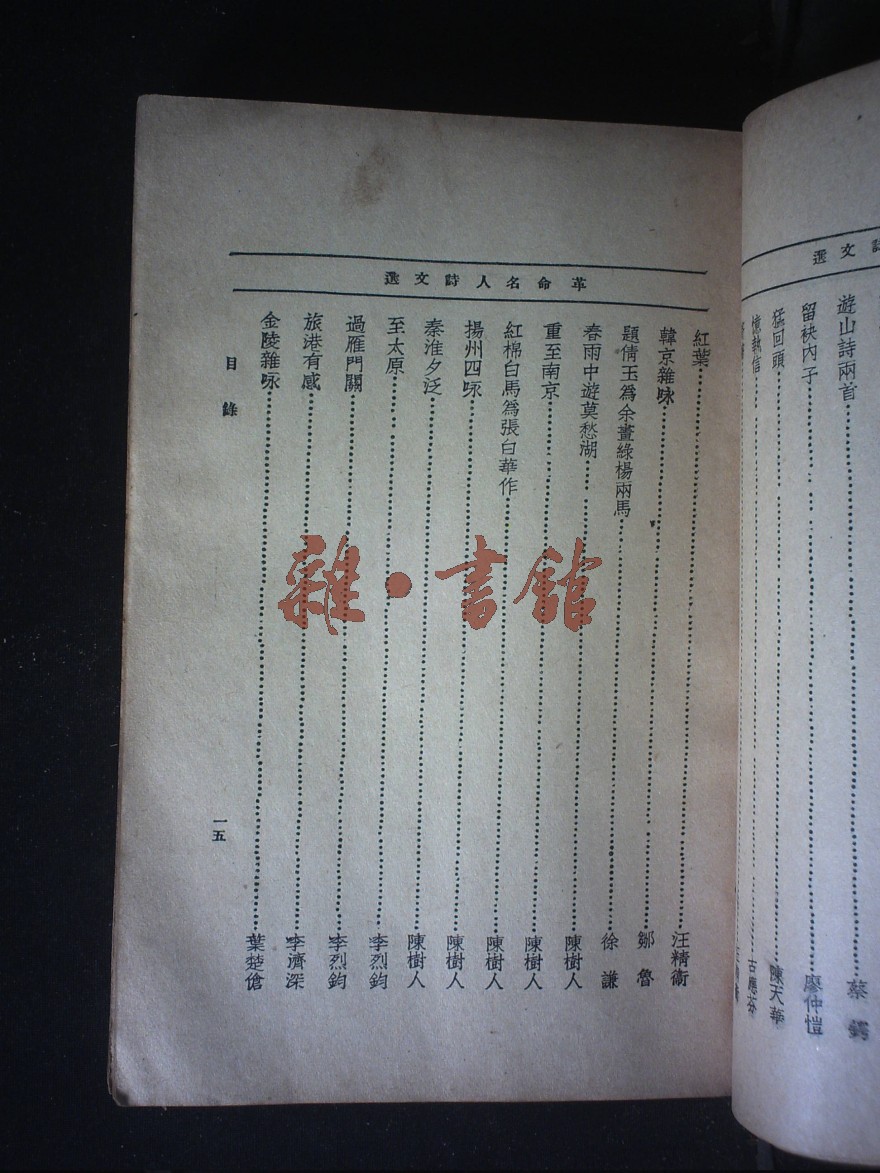 選文詩
遊山詩兩首……蔡鍔
留袂內子……廖仲愷
猛回頭……陳天華
憶執信……古應芬
革命名人詩文選
紅葉……汪精衞
韓京雜咏……鄒魯
題倩玉爲余畫綠楊兩馬……徐謙
春雨中遊莫愁湖……陳樹人
重至南京……陳樹人
紅棉白馬爲張白華作……陳樹人
揚州四咏……陳樹人
秦淮夕泛……陳樹人
至太原……李烈鈞
過雁門關……李烈鈞
旅港有感……李濟深
金陵雜咏……葉楚傖
目錄
一五
雜·書館